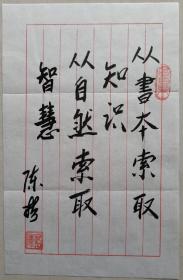 从書本索取
知识
从自然索取
智慧
陈